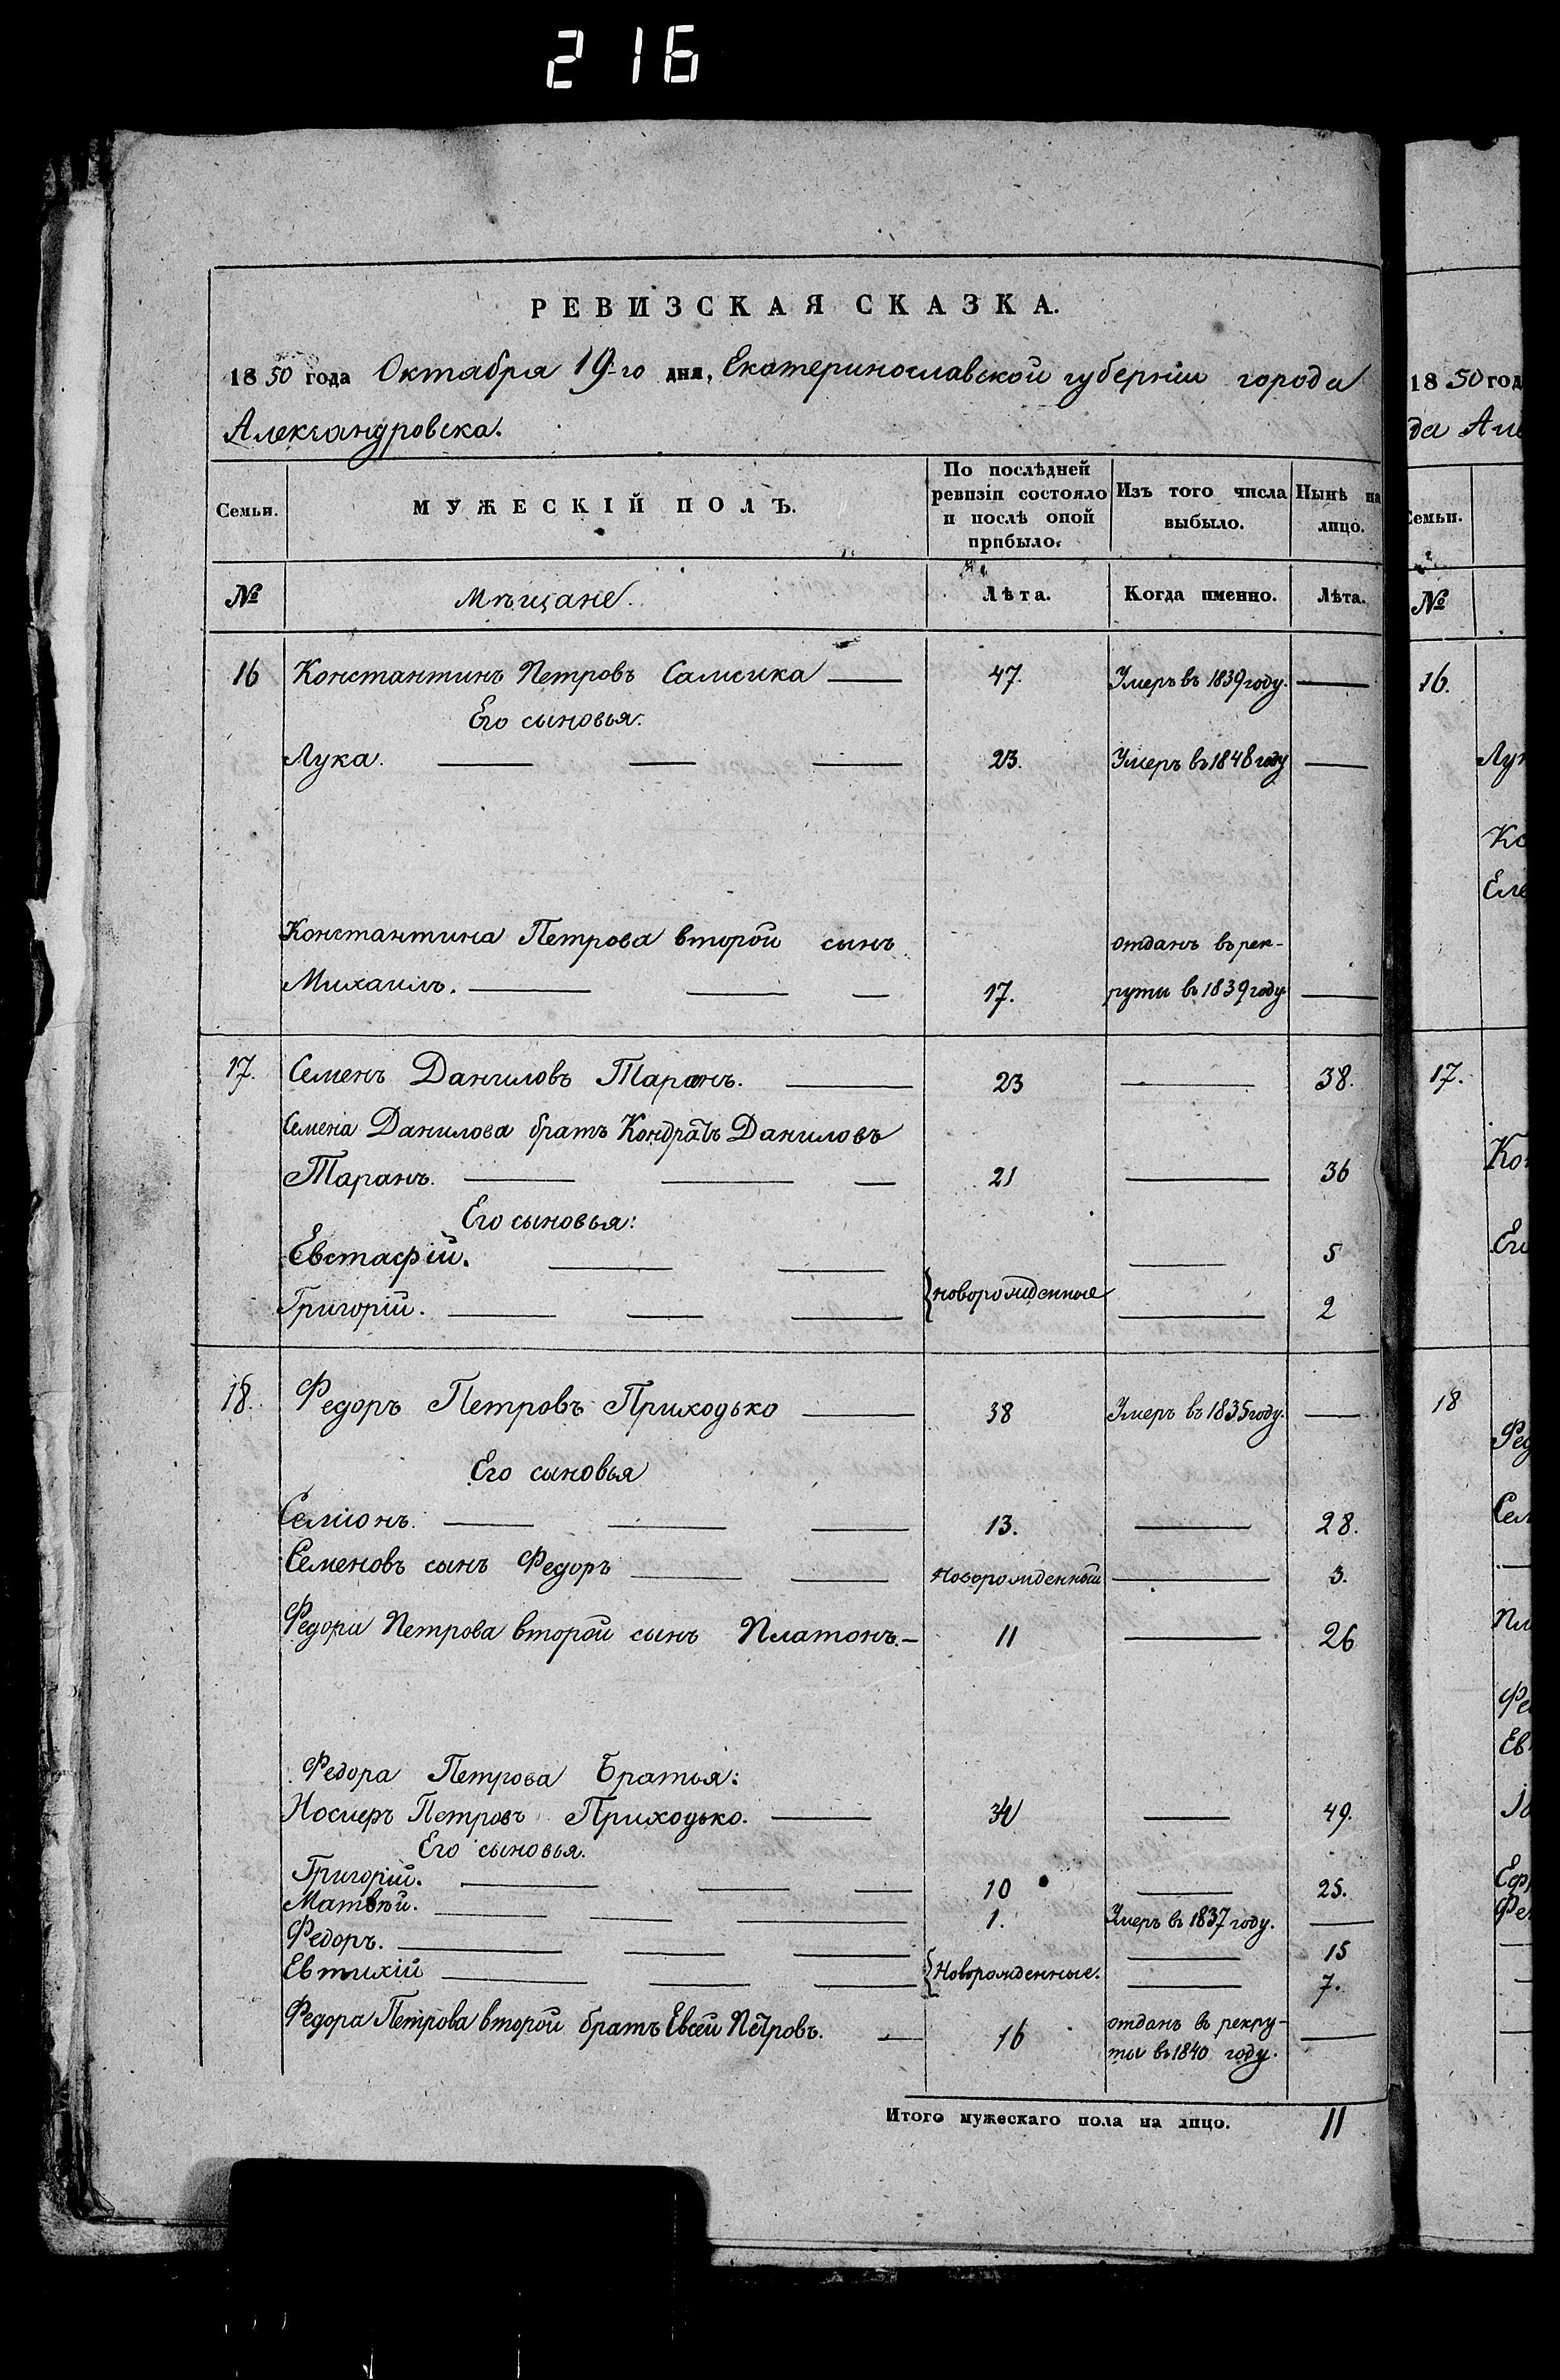 216
РЕВИЗСКАЯ СКАЗКА.
1850 года Октября 19-го дня, Екатеринославской губерніи города
Александровска.
Семьи. МУЖЕСКІЙ ПОЛЪ. По послѣдней ревизіи состояло и послѣ оной прибыло. Изъ того числа выбыло. Нынѣ на лицо.
№ Мѣщане. Лѣта. Когда именно. Лѣта.
16 Константинъ Петровъ Самсика 47. Умеръ въ 1839 году.
Его сыновья:
Лука. 23. Умеръ въ 1848 году
Константина Петрова второй сынъ отданъ въ рек-
Михаилъ. 17. руты въ 1839 году
17. Семенъ Даниловъ Таранъ. 23 38.
Семена Данилова братъ Кондратъ Даниловъ
Таранъ. 21 36
Его сыновья:
Евстафій. 5
новорожденные
Григорій. 2
18. Федоръ Петровъ Приходько 38 Умеръ въ 1835 году.
Его сыновья
Семіонъ. 13. 28.
Семеновъ сынъ Федоръ Новорожденный 3.
Федора Петрова второй сынъ Платонъ. 11 26
Федора Петрова Братья:
Иосифъ Петровъ Приходько. 34 49.
Его сыновья.
Григорій. 10 25.
Матвѣй. 1. Умеръ въ 1837 году.
Федоръ. 15
Новорожденные.
Евтихій 7.
Федора Петрова второй братъ Евсей Петровъ. 16 отданъ въ рекру-
ты въ 1840 году.
Итого мужескаго пола на лицо. 11
1850 год
да Але
Семьи.
№
16.
Лук
Ко
Еле
17.
Кон
Его
18
Фед
Сем
Пл
Фе
Ев
Іо
Еф
Фе